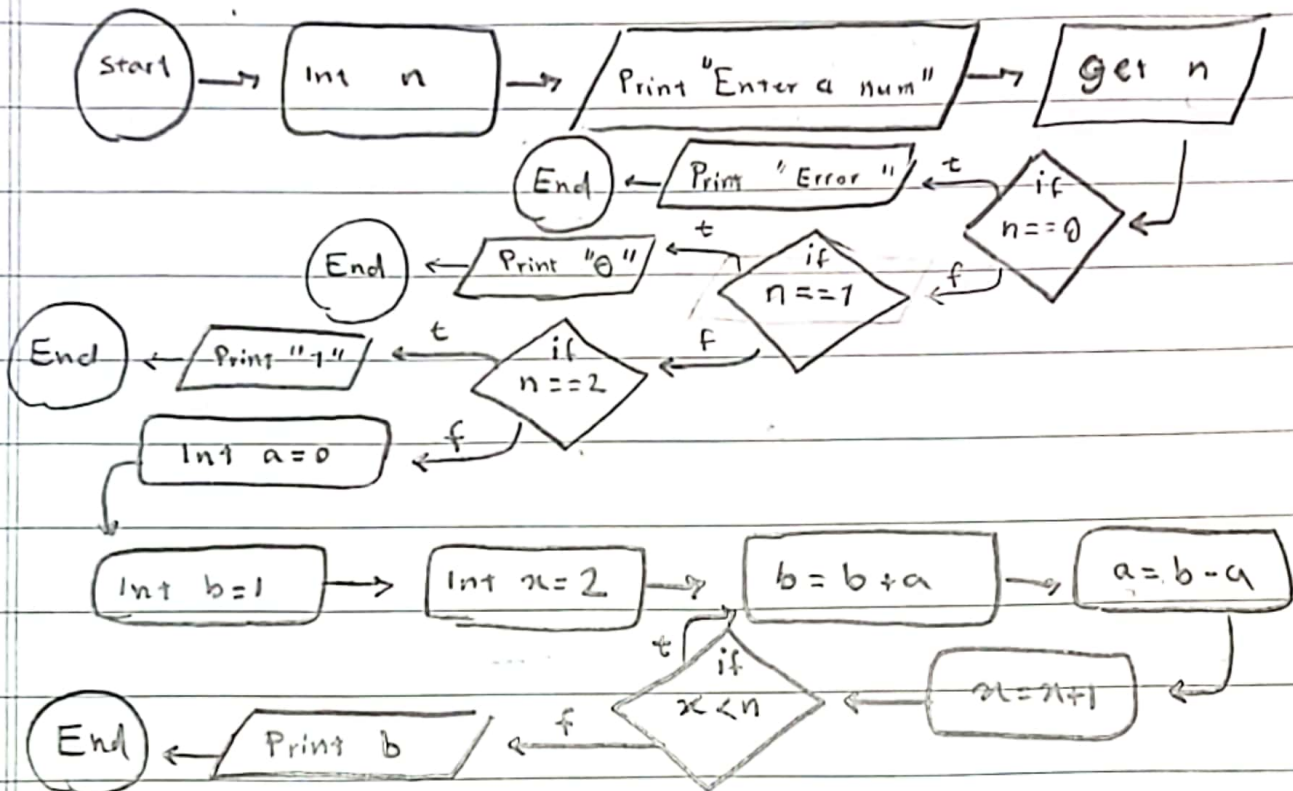 Start
Int n
Print "Enter a num"
get n
if
n==0
t
Print "Error"
End
f
if
n==1
t
Print "0"
End
f
if
n==2
t
Print "1"
End
f
Int a=0
Int b=1
Int x=2
b=b+a
a=b-a
x=x+1
if
x<n
t
f
Print b
End